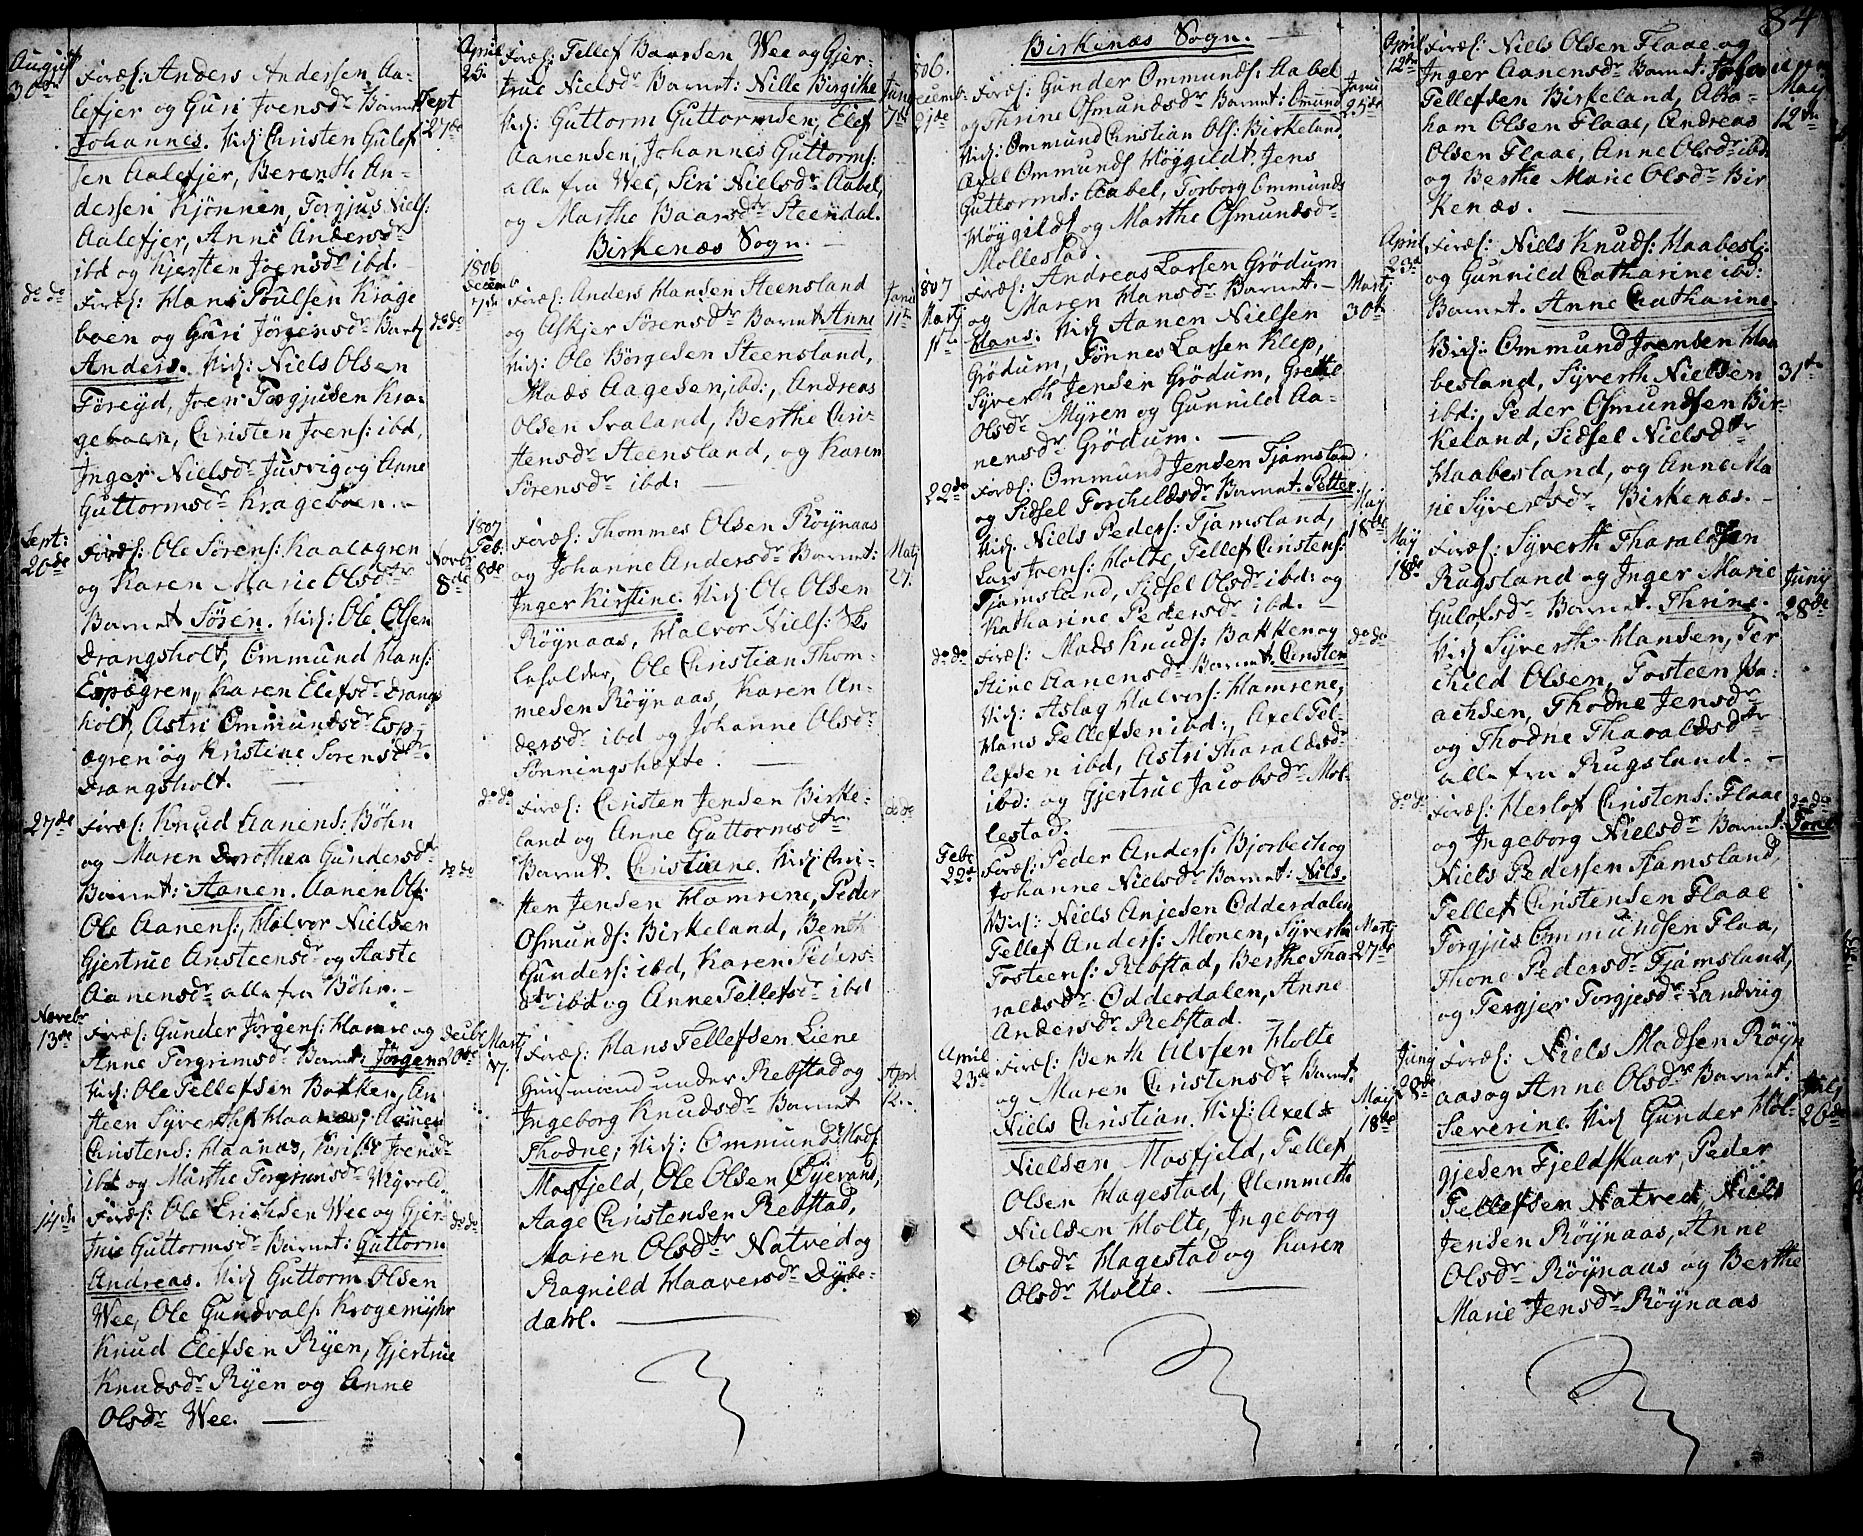 84
August
30te
Foræl: Anders Andersen Aa-
lefjer og Guri Joensdr Barnet
Johannes. Vid: Christen Gulof
sen Aalefjer, Berenth An-
dersen Kjönnen, Torgjus Niels:
Aalefjer, Anne Andersdr
ibd og Kjersten Joensdr ibd.
Sept
27de
do do
Foræl: Hans Poulsen Krage
boen og Guri Jörgensdr Barn
Anders. Vid: Niels Olsen
Föreÿd, Joen Torgjusen Kra-
geboen, Christen Joens: ibd,
Inger Nielsdr Jusvig og Anne
Guttormsdr Krageboen.
do do
Sept:
20de
Foræl: Ole Sörens: Kaalögren
og Karen Marie Olsdtr
Barnet Sören. Vid: Ole Olsen
Drangsholt, Ommund Hans:
Espögren, Karen Elefsdr Drangs
holt, Astri Ommundsdr Esp-
ögren og Kristine Sörensdtr
Drangsholt.
Novbr
8de
27de
Foræl: Knud Aanens: Böhn
og Maren Dorothea Gundersdr
Barnet: Aanen. Aanen Ols:
Ole Aanens:, Halvor Nielsen
Gjertrue Ansteensdr og Aaste
Aanensdr alle fra Böhn.
do do
Novebr
13de
Foræl: Gunder Jörgens: Hamre og
Anne Torgrimsdr Barnet: Jörgen
Vid: Ole Tellefsen Bakken, An
steen Syverths: Haanæs, Aanen
Christens: Haanas, Joensdr
ibd og Marthe Torgrimsdr Wigvold.
14de
Foræl: Ole Erichsen Wee og Gjer-
true Guttormsdr Barnet: Guttorm
Andreas. Vid Guttorm Olsen
Wee, Ole Gundvals: Krogemÿhr
Knud Elefsen Rÿen, Gjertrue
Knudsdr Rÿen og Anne
Olsdr Wee.
do do
April
25.
Foræl: Tellef Baarsen Wee og Gjer-
true Nielsdr Barnet: Nille Birgithe
Vid: Guttorm Guttormsen, Elef
Aanensen, Johannes Guttorms:
alle fra Wee, Siri Nielsdr Aabel,
og Marthe Baarsdr Steendal.
Juny
7de
Birkenæs Sogn.
1806
Decemb
7de
Foræl: Anders Hansen Steensland
og Askjer Sörensdtr Barnet Anne
Vid: Ole Börgesen Steensland,
Mads Aagesen, ibd:, Andreas
Olsen Svaland, Berthe Chri-
stensdr Steensland, og Karen
Sörensdr ibd:
Janu
11te
1807
Feb.
8de
Foræl: Thommes Olsen Röÿnaas
og Johanne Andersdr Barnet:
Inger Kirstine. Vid: Ole Olsen
Röÿnaas, Halvor Niels:
Ole Christian Thom-
mesen Röÿnaas, Karen An-
dersdr ibd og Johanne Olsdr
Sönningshefte.
Martj
27.
do do
Foræl: Christen Jensen Birke-
land og Anne Guttormsdtr
Barnet. Christiane. Vid: Chri-
sten Jensen Hamrene, Peder
Osmunds: Birkeland, Benth
Gunders: ibd, Karen Peders-
dtr ibd og Anne Tellefsdr ibd
do do
Martj
17.
Foræl: Hans Tellefsen Liene
Huusmand under Rebstad og
Ingeborg Knudsdr Barnet
Thodne; Vid: Ommund Mads:
Mosfjeld, Ole Olsen Öÿevand,
Aage Christensen Rebstad,
Maren Olsdtr Natved og
Ragnild Haaversdr Dÿbe-
dahl.
Apr.
12
Birkenæs Sogn.
806.
Decemb.
21de
Foræl: Gunder Ommunds: Aabel
og Thrine Osmundsdr Barnet: Ommund
Vid: Ommund Christian Ols: Birkeland
Axel Ommunds Höÿgildt, Jens
Guttorms: Aabel, Torborg Ommunds
Höÿgildt og Marthe Osmundsdr
Mollestad.
Janu
25de
1807
Martj
11te
Foræl: Andreas Larsen Grödum
og Maren Hansdr Barnet:
Hans. Vid Aanen Nielsen
Grödum, Tönnes Larsen Klep,
Syverth Jensen Grödum, Grethe
Olsdr Mÿren og Gunnild Aa-
nensdr Grödum.
Martj
30te
22de
Foræl: Ommund Jensen Tjamsland
og Sidsel Torchildsdr Barnet. Petter
Vid. Niels Peders: Tjamsland,
Lars Joens: Holte, Tellef Christens:
Tjamsland, Sidsel Olsdr ibd: og
Katharine Pedersdr ibd.
Maj
18de
do do
Foræl: Mads Knuds: Bakken og
Stine Aanensdr Barnet: Christen
Vid: Aslag Halvors: Hamrene,
Hans Tellefsen ibd:, Axel Tel-
lefsen ibd, Astri Tharaldsdr
ibd: og Gjertrue Jacobsdr Mol-
lestad.
do do
Febr
22de
Foræl: Peder Anders: Bjorbech og
Johanne Nielsdr Barnet: Nils.
Vid: Niels Anjesen Odderdalen
Tellef Anders: Monen, Syverth
Tosteens: Rebstad, Berthe Tha-
raldsdr Odderdalen, Anne
Andersdr Rebstad.
Martj
27de
April
23de
Foræl: Benth Alvsen Holte
og Maren Christensdr Barnet:
Niels Christian. Vid: Axel
Nielsen Mosfjeld, Tellef
Olsen Hagestad, Clemmeth
Nielsen Holte, Ingeborg
Olsdr Hagestad og Karen
Olsdr Holte.
Maij
18de
April
12te
Foræl: Niels Olsen Flaae og
Inger Aanensdr Barnet:
Tellefsen Birkeland, Abra-
ham Olsen Flaae, Andreas
Olsen Flaae, Anne Olsdr ibd
og Berthe Marie Olsdr Bir
kenæs.
Maÿ
12te
April
23de
Foræl: Niels Knuds: Haabesl:
og Gunnild Catharine ibd:
Barnet. Anne Catharine.
Vid: Ommund Joensen Haa
besland, Syverth Nielsen
ibd:, Peder Osmundsen Bir-
keland, Sidsel Nielsdtr
Haabesland, og Anne Ma
rie Syvertsdr Birkenæs.
31te
Maÿ
18de
Foræl: Syverth Tharaldsen
Rugsland og Inger Marie
Gulofsdr Barnet. Thrine.
Vid Syverth Hansen, Ter
child Olsen, Tosteen Isa-
achsen, Thodne Jensdr
og Thodne Tharaldsdtr
alle fra Rugsland.
Junÿ
28de
do do
Foræl: Herlof Christens: Flaae
og Ingeborg Nielsdr Barnet: Tone
Niels Pedersen Tjamsland,
Tellef Christensen Flaae
Torgjus Ommundsen Flaa,
Thone Pedersdr Tjamsland,
og Tergjer Torgjesdr Landvig
do do
Junÿ
28de
Foræl: Niels Madsen Röÿn
aas og Anne Olsdr Barnet:
Severine. Vid Gunder Hol-
gjesen Fjeldskaar, Peder
Tellefsen Natved, Niels
Jensen Röÿnaas, Anne
Olsdr Röÿnaas og Berthe
Marie Jensdr Röÿnaas
Julÿ
26de